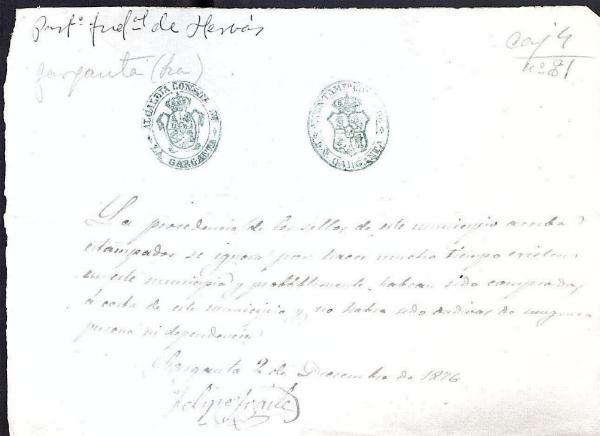 Part.º Jud.al de Hervás
Garganta (La)
Caj 4
nº 81
ALCALDIA CONSTL. DE LA GARGANTA
AYUNTAMIENTO DE LA GARGANTA
La procedencia de los sellos de este municipio arriba
estampados se ignora por hacer mucho tiempo existen
en este municipio y probablemente habran sido comprados
á costa de este municipio y no habra sido dadivas de ninguna
persona ni dependencia
Garganta 2 de Diciembre de 1876
Felipe